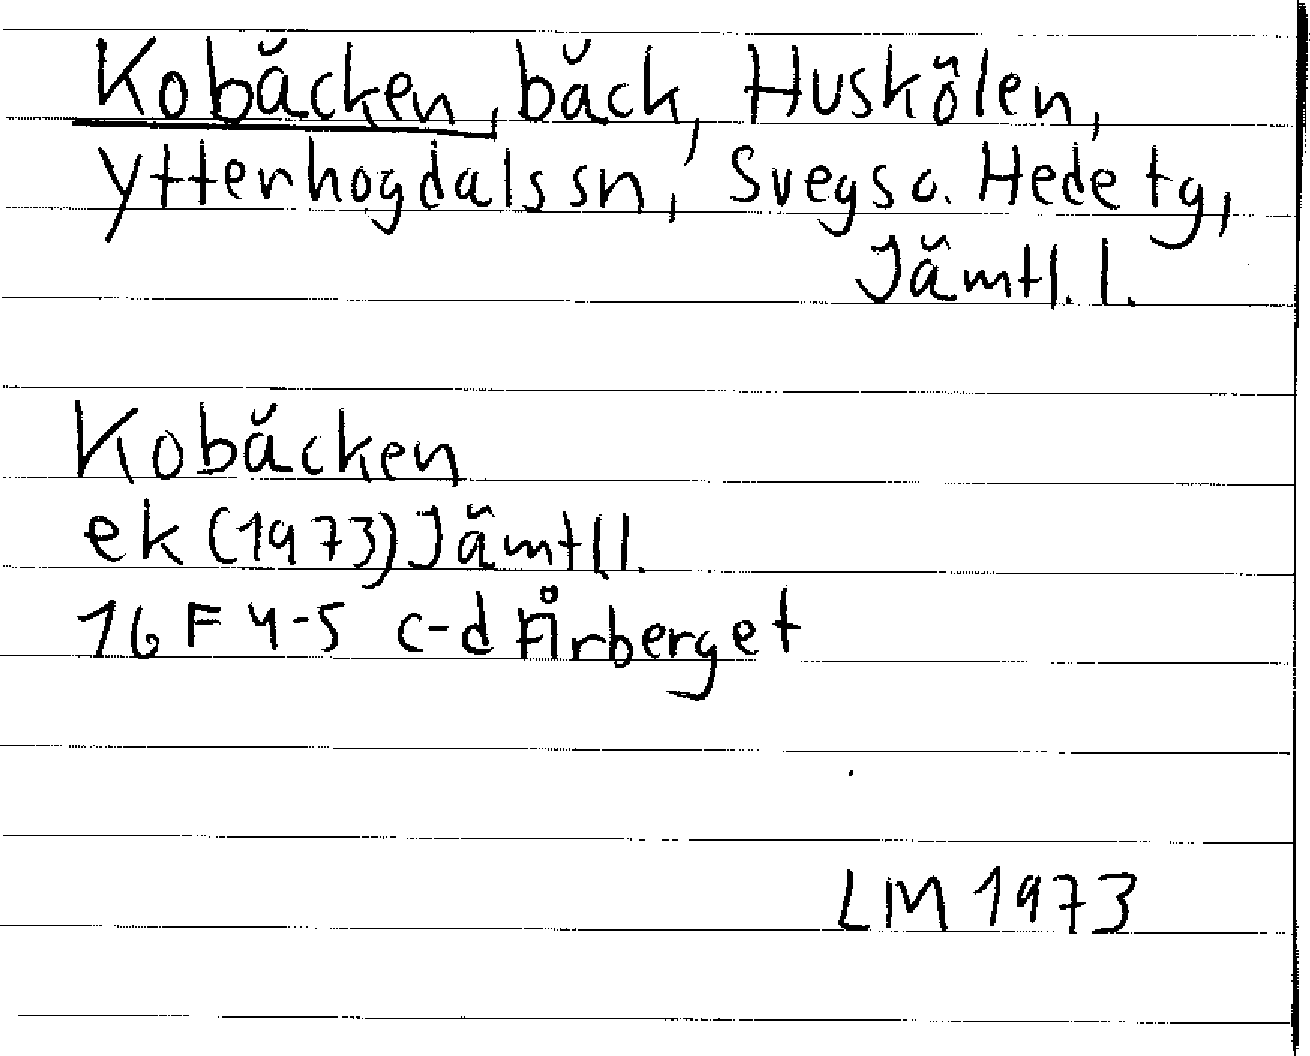 Kobäcken, bäck, Huskölen,
Ytterhogdals sn, Svegs o. Hede tg,
Jämtl. l.
Kobäcken
ek (1973) Jämtl l.
16 F 4-5 c-d Fårberget
LM 1973